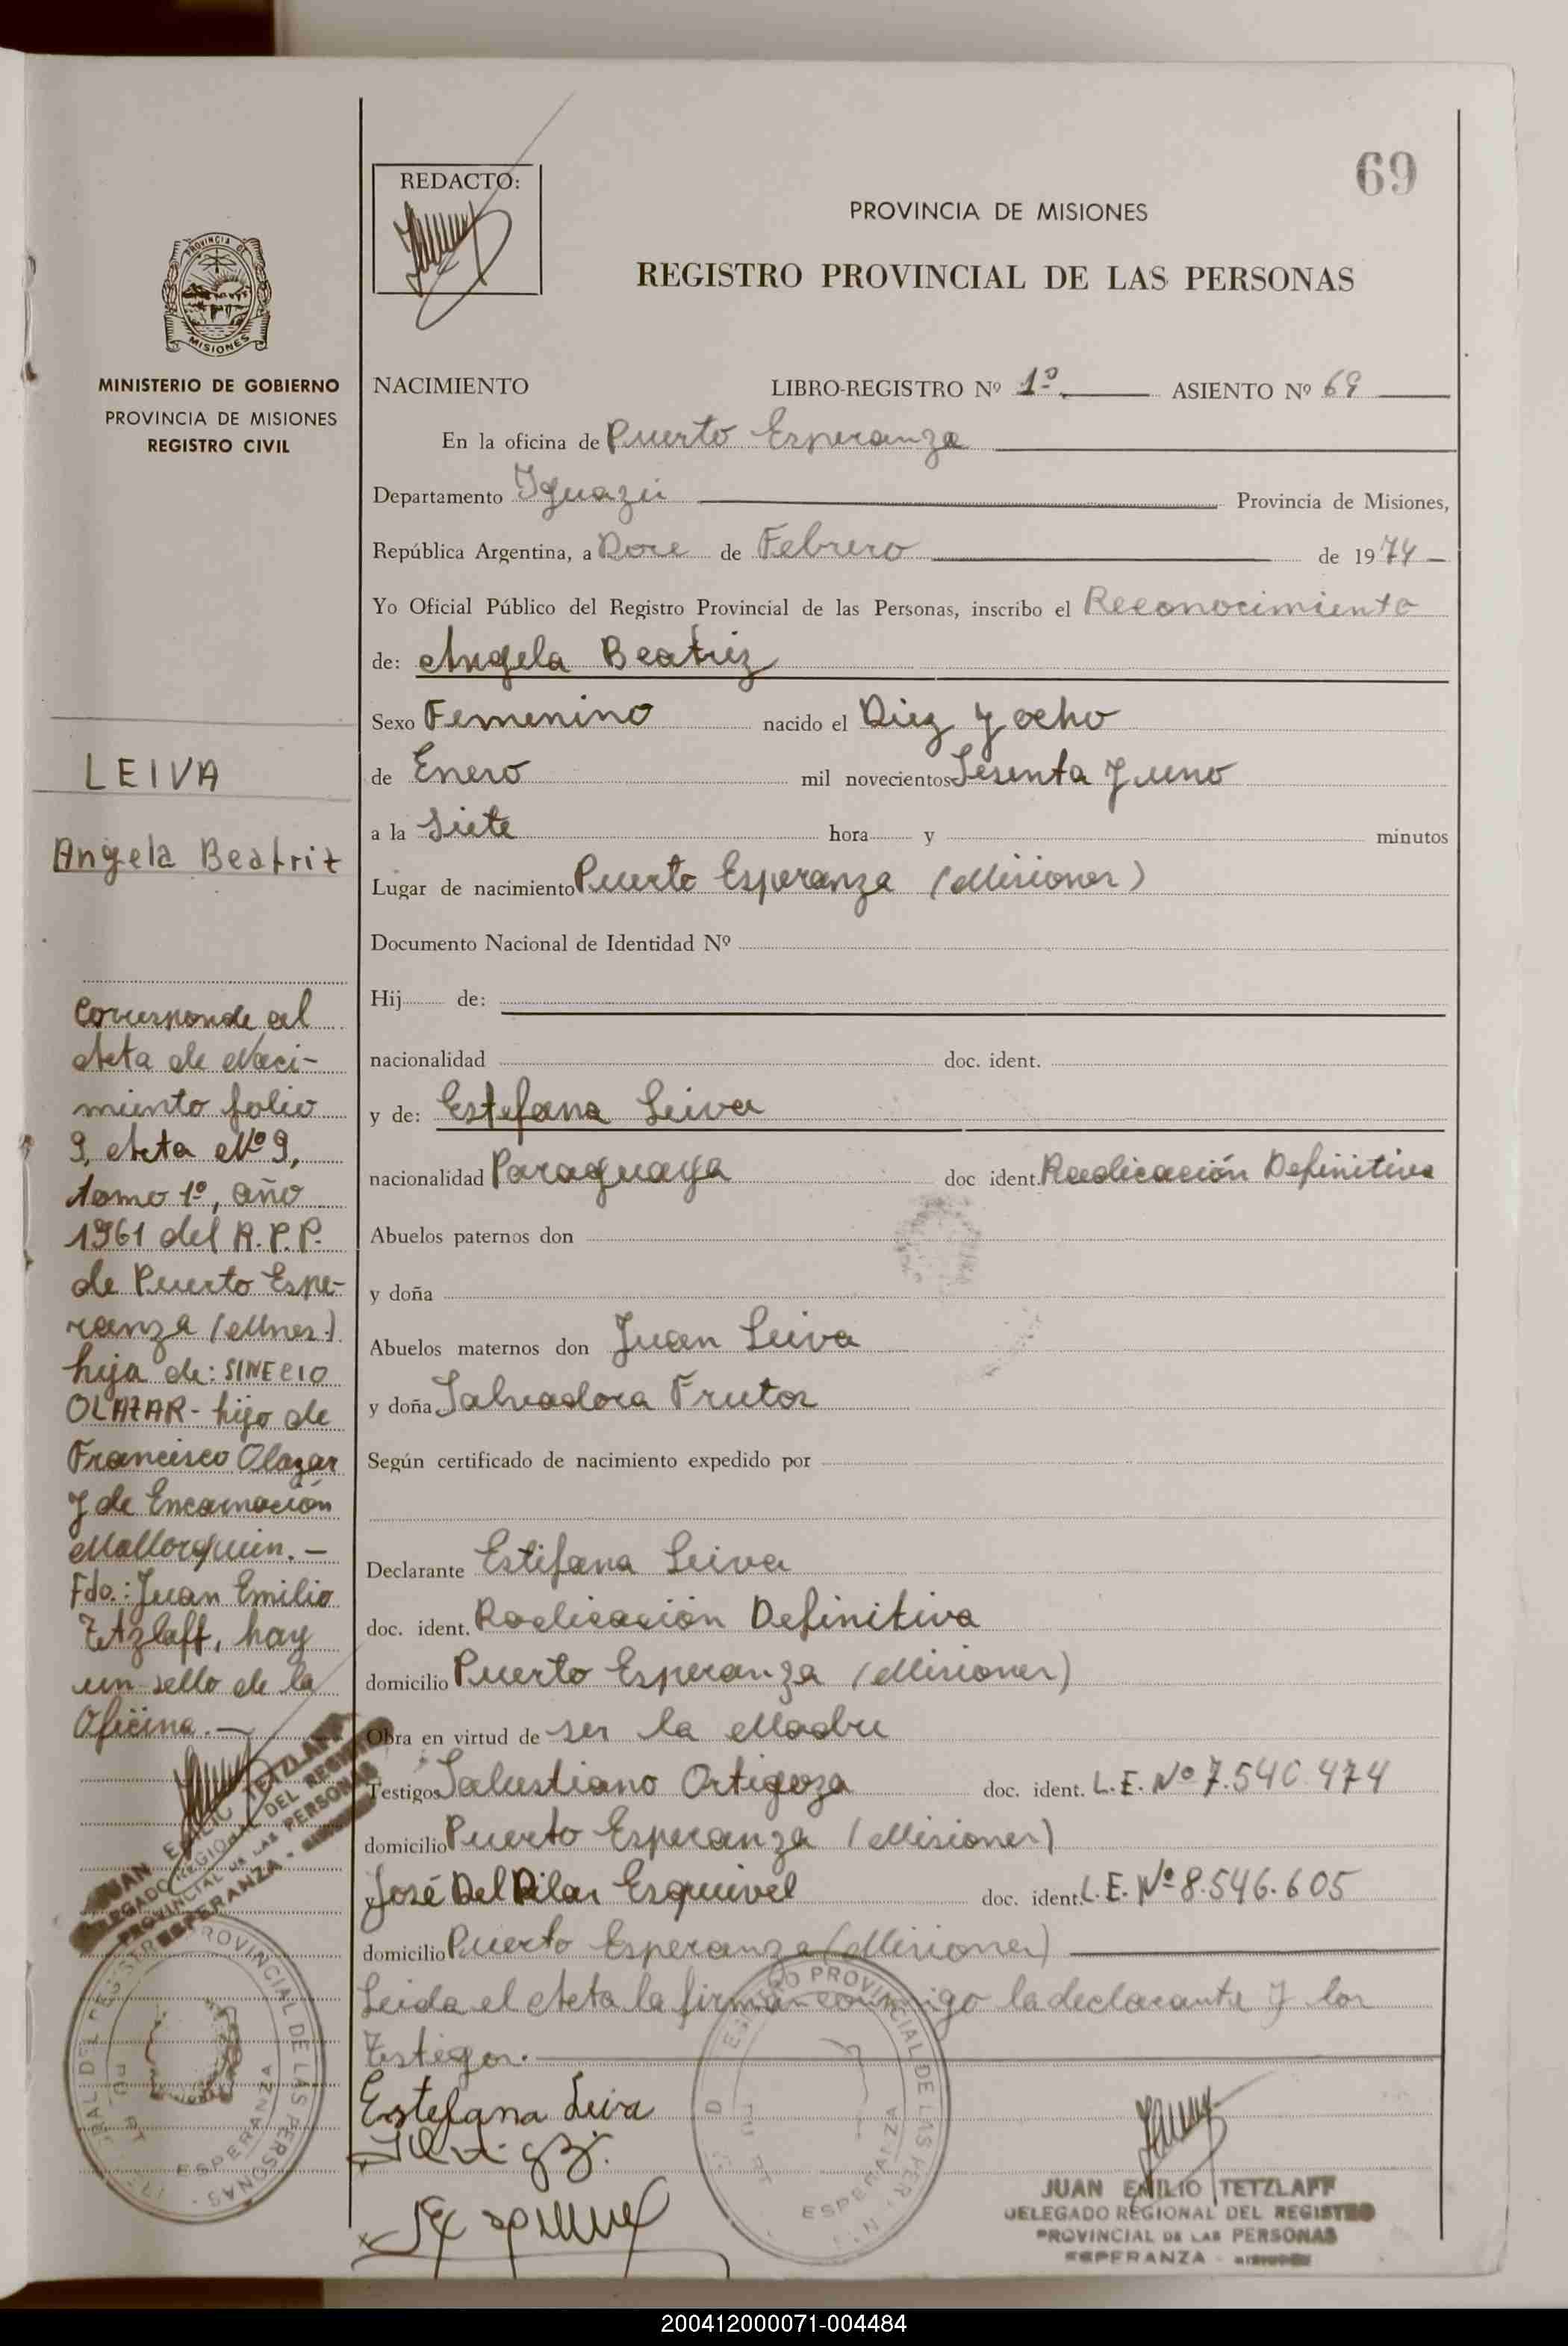 69
REDACTO:
PROVINCIA DE MISIONES
REGISTRO PROVINCIAL DE LAS PERSONAS
PROVINCIA DE
MISIONES
MINISTERIO DE GOBIERNO
PROVINCIA DE MISIONES
REGISTRO CIVIL
LEIVA
Angela Beatriz
Corresponde al
Acta de Naci-
miento folio
9, Acta Nº 9,
tomo 1º, año
1961 del R.P.P.
de Puerto Espe-
ranza (Mnes.)
hija de: SINECIO
OLAZAR - hijo de
Francisco Olazar
y de Encarnación
Mallorquin. -
Fdo.: Juan Emilio
Tetzlaff, hay
un sello de la
Oficina. -
JUAN EMILIO TETZLAFF
DELEGADO REGIONAL DEL REGISTRO
PROVINCIAL DE LAS PERSONAS
ESPERANZA -
PROVINCIAL DE LAS PERSONAS
ESPERANZA
NACIMIENTO LIBRO-REGISTRO Nº 1º ASIENTO Nº 69
En la oficina de Puerto Esperanza
Departamento Iguazú Provincia de Misiones,
República Argentina, a Doce de Febrero de 1974
Yo Oficial Público del Registro Provincial de las Personas, inscribo el Reconocimiento
de: Angela Beatriz
Sexo Femenino nacido el Diez y ocho
de Enero mil novecientos Sesenta y uno
a la Siete hora y minutos
Lugar de nacimiento Puerto Esperanza (Misiones)
Documento Nacional de Identidad Nº
Hij de:
nacionalidad doc. ident.
y de: Estefana Leiva
nacionalidad Paraguaya doc ident. Radicación Definitiva
Abuelos paternos don
y doña
Abuelos maternos don Juan Leiva
y doña Salvadora Frutos
Según certificado de nacimiento expedido por
Declarante Estifana Leiva
doc. ident. Radicación Definitiva
domicilio Puerto Esperanza (Misiones)
Obra en virtud de ser la Madre
Testigos Salustiano Ortigoza doc. ident. L.E. Nº 7.540.474
domicilio Puerto Esperanza (Misiones)
y José Del Pilar Esquivel doc. ident. L.E. Nº 8.546.605
domicilio Puerto Esperanza (Misiones)
Leida el Acta la firman conmigo la declarante y los
Testigos. -
Estefana Leiva
PROVINCIAL DE LAS PER
ESPERANZA
JUAN EMILIO TETZLAFF
DELEGADO REGIONAL DEL REGISTRO
PROVINCIAL DE LAS PERSONAS
ESPERANZA -
200412000071-004484